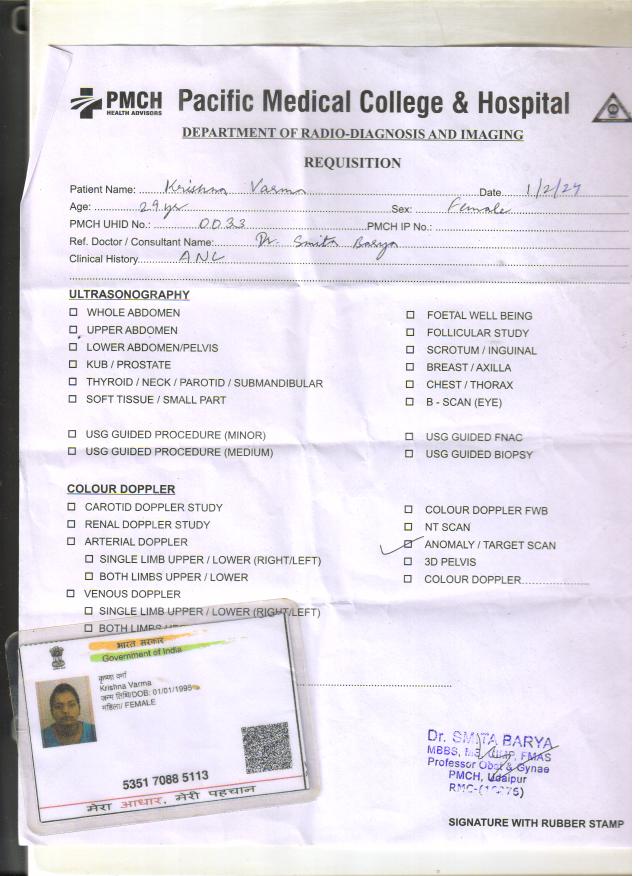 PMCH
HEALTH ADVISORS
Pacific Medical College & Hospital
DEPARTMENT OF RADIO-DIAGNOSIS AND IMAGING
REQUISITION
Patient Name: Krishna Varma Date 1/2/24
Age: 29 yr Sex: Female
PMCH UHID No.: 0033 PMCH IP No.:
Ref. Doctor / Consultant Name: Dr. Smita Barya
Clinical History ANC
ULTRASONOGRAPHY
WHOLE ABDOMEN
UPPER ABDOMEN
LOWER ABDOMEN/PELVIS
KUB / PROSTATE
THYROID / NECK / PAROTID / SUBMANDIBULAR
SOFT TISSUE / SMALL PART
FOETAL WELL BEING
FOLLICULAR STUDY
SCROTUM / INGUINAL
BREAST / AXILLA
CHEST / THORAX
B - SCAN (EYE)
USG GUIDED PROCEDURE (MINOR)
USG GUIDED PROCEDURE (MEDIUM)
USG GUIDED FNAC
USG GUIDED BIOPSY
COLOUR DOPPLER
CAROTID DOPPLER STUDY
RENAL DOPPLER STUDY
ARTERIAL DOPPLER
SINGLE LIMB UPPER / LOWER (RIGHT/LEFT)
BOTH LIMBS UPPER / LOWER
VENOUS DOPPLER
SINGLE LIMB UPPER / LOWER (RIGHT/LEFT)
BOTH LIMBS
COLOUR DOPPLER FWB
NT SCAN
ANOMALY / TARGET SCAN
3D PELVIS
COLOUR DOPPLER
भारत सरकार
Government of India
कृष्णा वर्मा
Krishna Varma
जन्म तिथि/DOB: 01/01/1995
महिला/ FEMALE
5351 7088 5113
मेरा आधार, मेरी पहचान
Dr. SMITA BARYA
MBBS, FMAS
Professor Obst & Gynae
PMCH, Udaipur
SIGNATURE WITH RUBBER STAMP